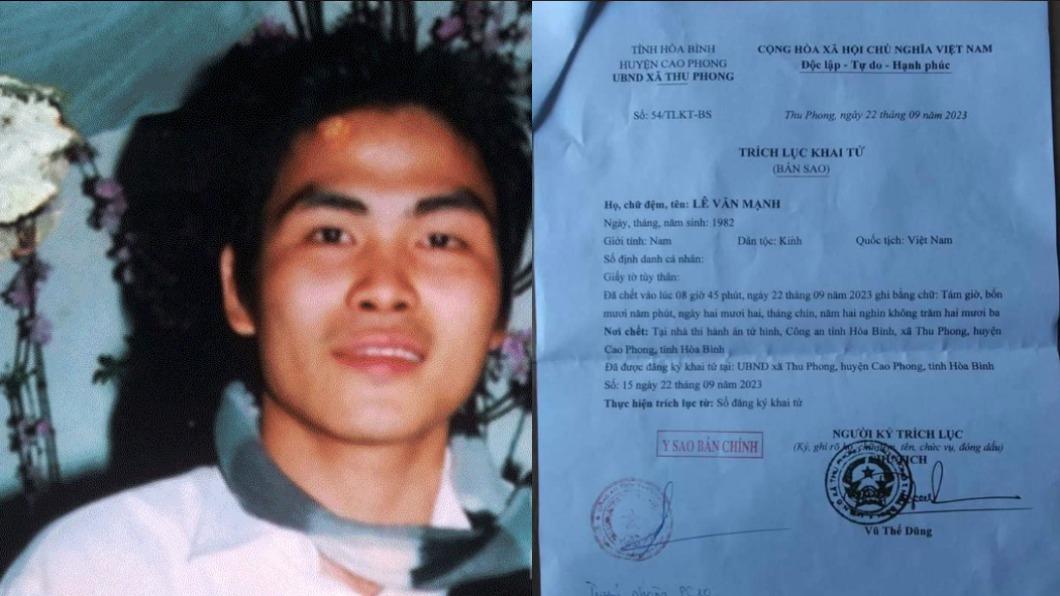 TỈNH HÒA BÌNH
HUYỆN CAO PHONG
UBND XÃ THU PHONG
CỘNG HÒA XÃ HỘI CHỦ NGHĨA VIỆT NAM
Độc lập - Tự do - Hạnh phúc
Số: 54/TLKT-BS
Thu Phong, ngày 22 tháng 09 năm 2023
TRÍCH LỤC KHAI TỬ
(BẢN SAO)
Họ, chữ đệm, tên: LÊ VĂN MẠNH
Ngày, tháng, năm sinh: 1982
Giới tính: Nam Dân tộc: Kinh Quốc tịch: Việt Nam
Số định danh cá nhân:
Giấy tờ tùy thân:
Đã chết vào lúc 08 giờ 45 phút, ngày 22 tháng 09 năm 2023 ghi bằng chữ: Tám giờ, bốn
mươi năm phút, ngày hai mươi hai, tháng chín, năm hai nghìn không trăm hai mươi ba
Nơi chết: Tại nhà thi hành án tử hình, Công an tỉnh Hòa Bình, xã Thu Phong, huyện
Cao Phong, tỉnh Hòa Bình
Đã được đăng ký khai tử tại: UBND xã Thu Phong, huyện Cao Phong, tỉnh Hòa Bình
Số: 15 ngày 22 tháng 09 năm 2023
Thực hiện trích lục từ: Sổ đăng ký khai tử
NGƯỜI KÝ TRÍCH LỤC
(Ký, ghi rõ họ, chữ đệm, tên, chức vụ, đóng dấu)
Y SAO BẢN CHÍNH
Vũ Thế Dũng